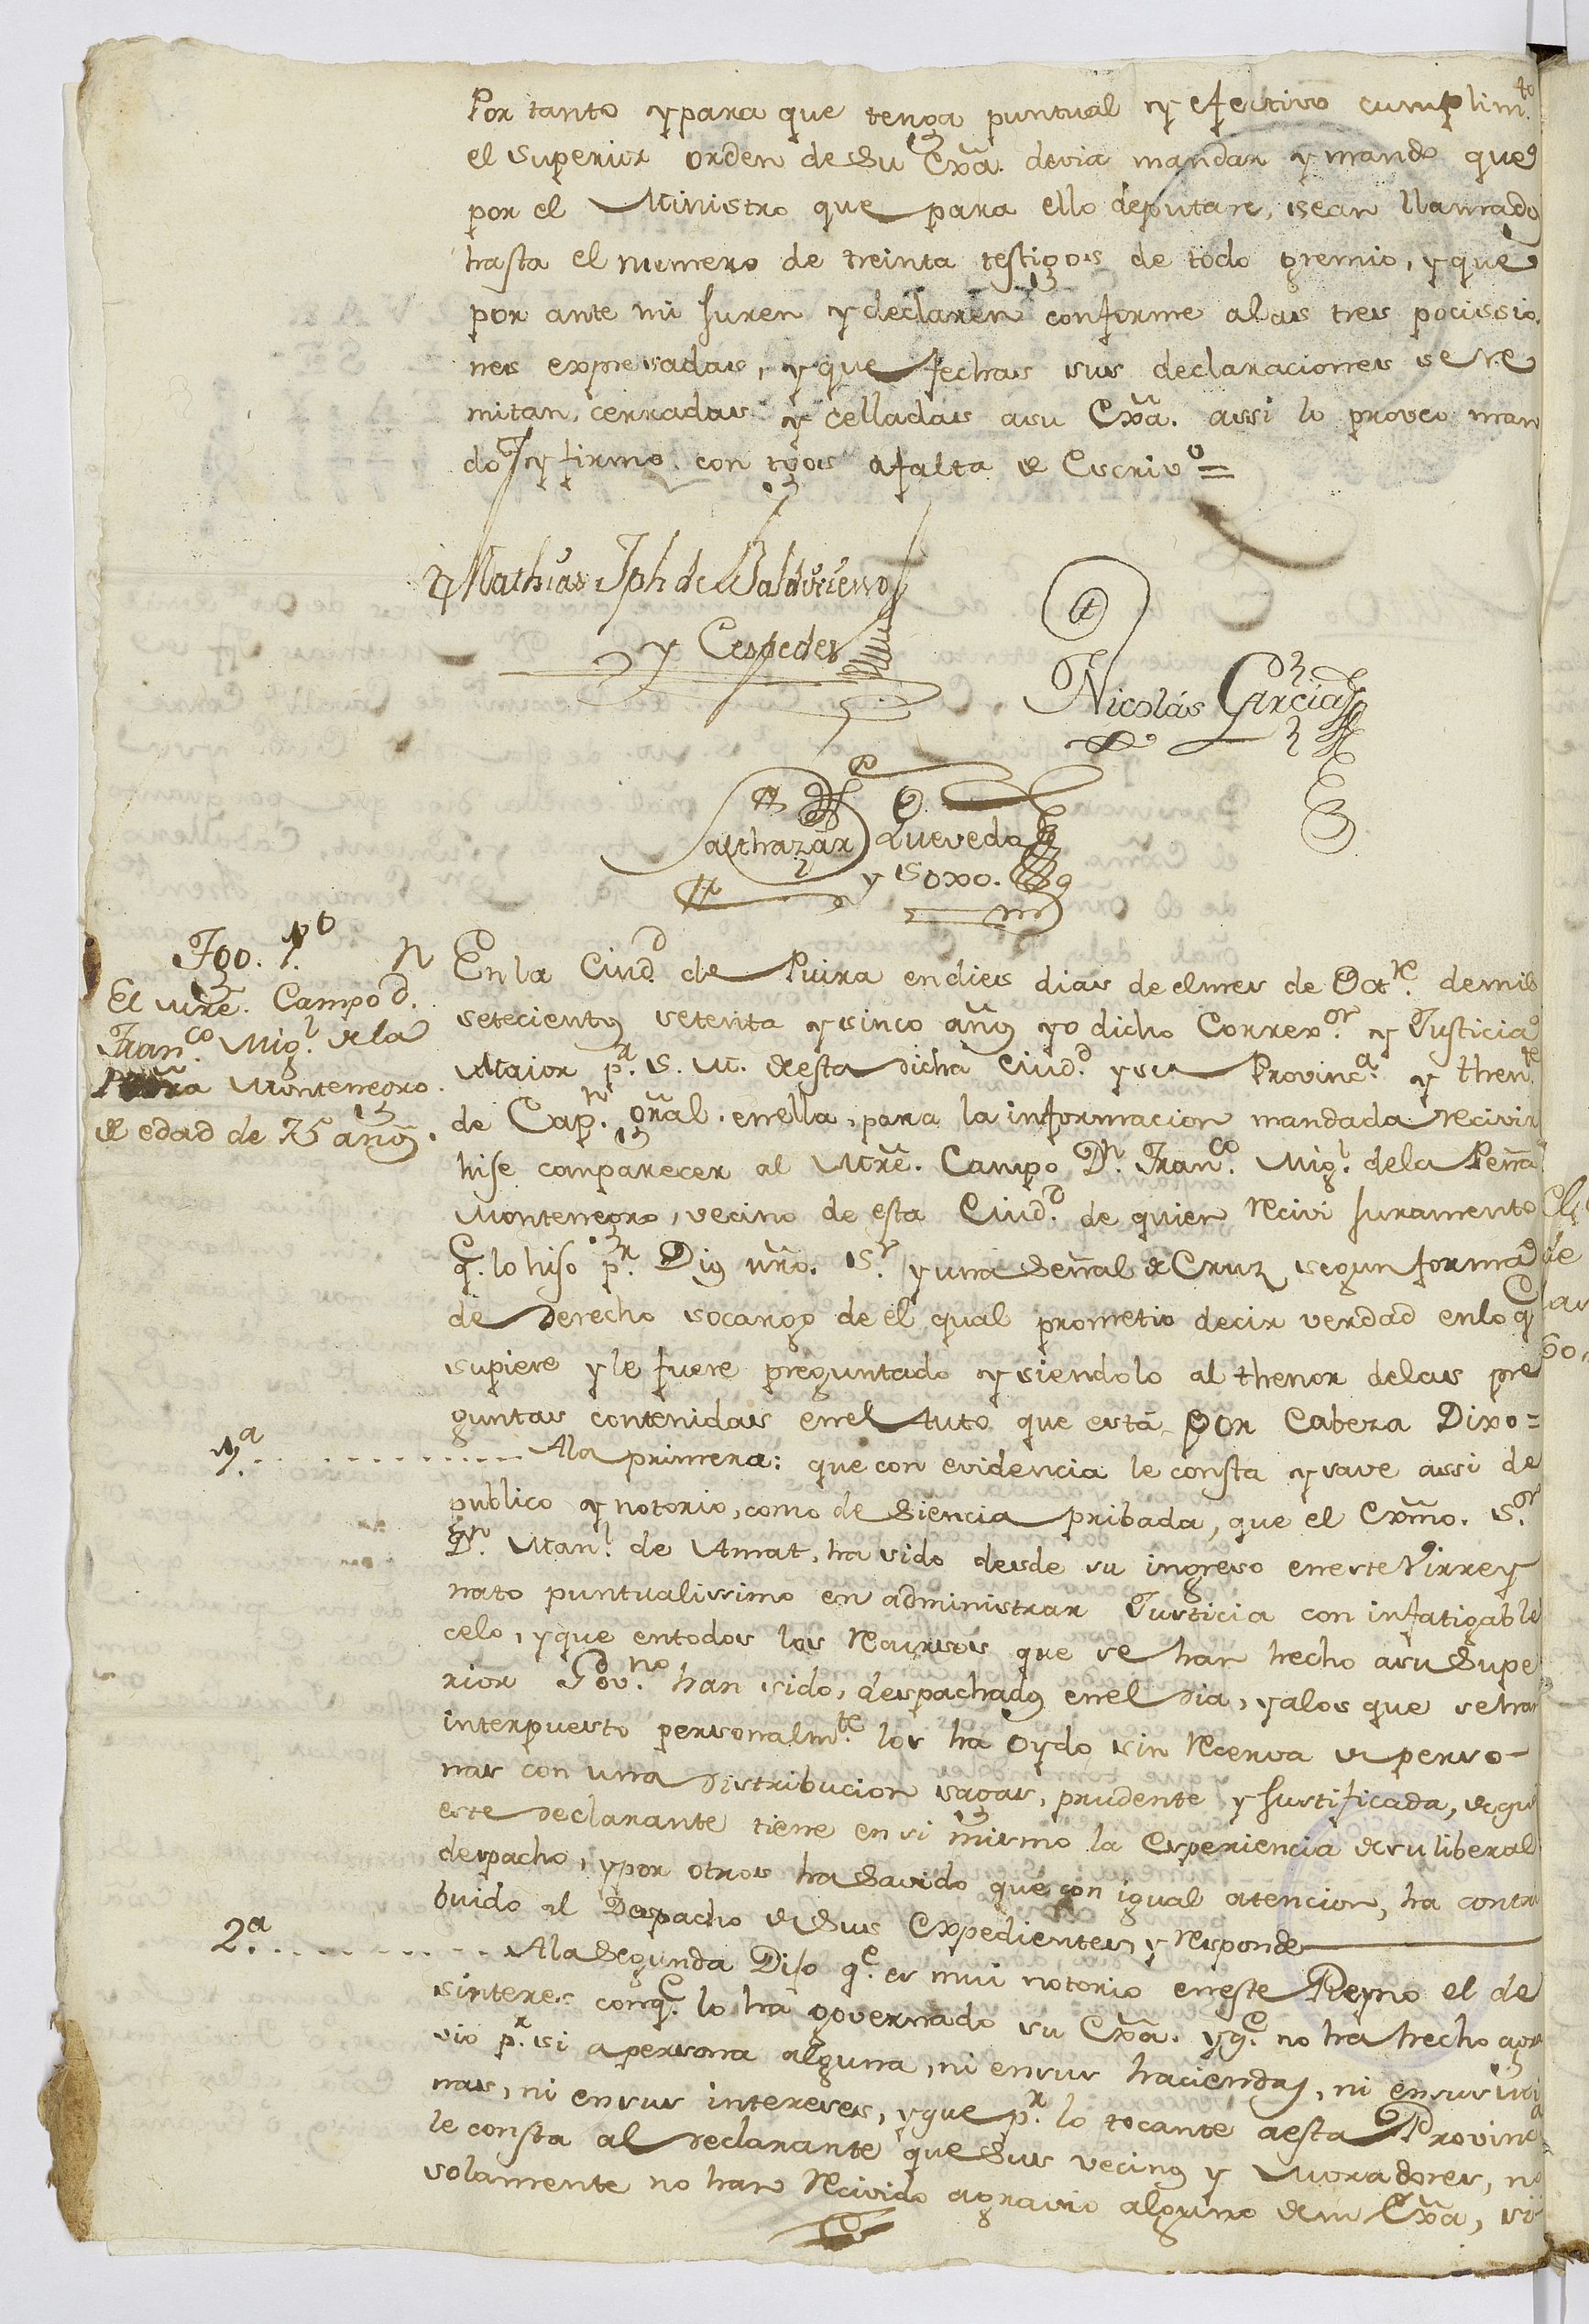 Por tanto y para que tenga puntual y efectivo cumplim.to
el superior orden de su Exã. devia mandar y mando que
por el Ministro que para ello deputare, sean llamados
hasta el numero de treinta testigos de todo gremio, y que
por ante mi juren y declaren conforme alas tres pocissio
nes expresadas, y que fechas sus declaraciones se re
mitan, cerradas y celladas asu Exã. assi lo proveo man
do y firmo con tgos afalta de Escriv.o =
Mathias Jph de Baldivieso
y Cespedes
Nicolás Garcia
Balthazár Quevedo
y Soxo.
Tgo. 1.o
El Mre. Campo D.
Fran.co Mig.l de la
Peña Montenegro
de edad de 75 años.
En la Ciud.d de Piura endies dias de el mes de Oct.re de mil
setecientos setenta y sinco años yo dicho Correx.or y Justicia
Maior p.r S. M. de esta dicha Ciud.d y su Provinc.a y then.te
de Cap.n Gral. en ella, para la informacion mandada recivir
hise comparecer al Mre. Campo D.n Fran.co Mig.l dela Peña
Montenegro, vecino de esta Ciud.d de quien recivi juramento
q.e lo hiso p.r Dios nro. S.r y una señal de Cruz segun forma
de derecho so cargo de el qual prometio decir verdad enlo q.e
supiere y le fuere preguntado y siendolo al thenor delas pre
guntas contenidas enel Auto que está por Cabeza Dixo =
1.a ............... Ala primera: que con evidencia le consta y save assi de
publico y notorio, como de siencia pribada, que el Exmo. S.or
D.n Man.l de Amat, ha sido desde su ingreso eneste Virrey
nato puntualissimo en administrar Justicia con infatigable
celo, y que entodos los recursos que se han hecho asu Supe
rior Gov.no han sido, despachados enel dia, y alos que se han
interpuesto personalm.te los ha oydo sin recerva de perso-
nas con una distribucion sagas, prudente y justificada, de que
este declarante tiene en si mismo la experiencia de su liberal
despacho, y por otros ha savido que con igual atencion, ha contri
buido al Despacho de sus Expedientes y responde
2.a ............ Ala segunda Dijo q.e es mui notorio eneste Reyno el de
sinteres conq.e lo ha governado su Exã. y q.e no ha hecho agra
vio p.r si apersona alguna, ni ensus haciendas, ni ensus
nas, ni ensus intereses, y que p.r lo tocante aesta Provinc.a
le consta al declarante que sus vecinos y moradores, no
solamente no han recivido agravio alguno de su Exã, si